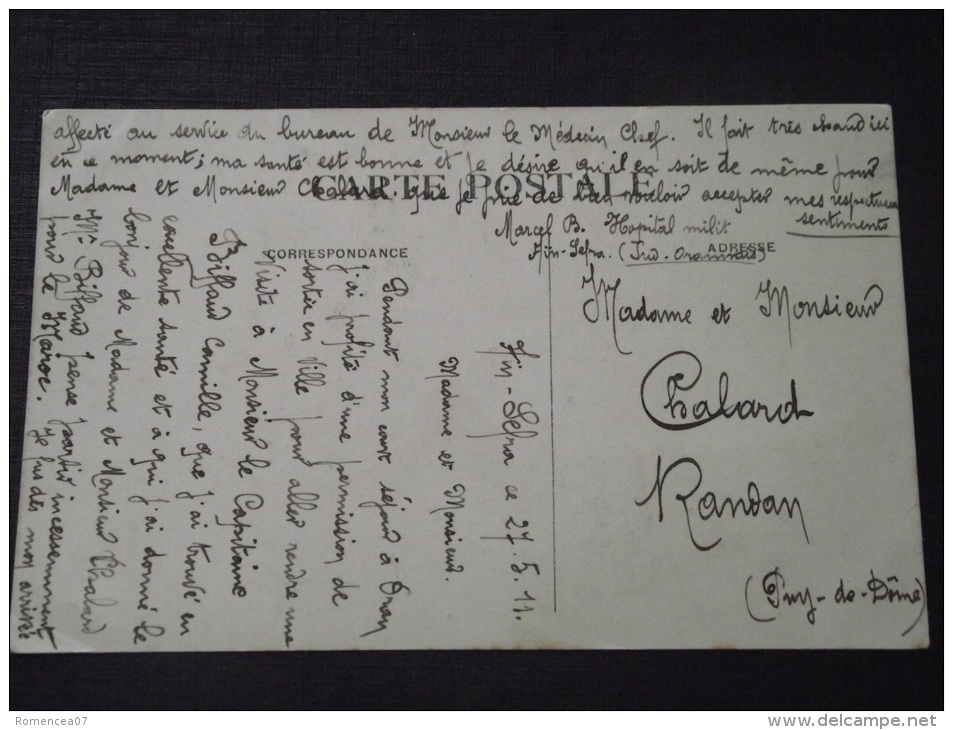 CARTE POSTALE
CORRESPONDANCE
ADRESSE
Aïn-Sefra ce 27.5.11.
Madame et Monsieur.
Pendant mon court séjour à Oran
j'ai profité d'une permission de
sortie en Ville pour aller rendre une
visite à Monsieur le Capitaine
Biffaud Camille, que j'ai trouvé en
excellente santé et à qui j'ai donné le
bonjour de Madame et Monsieur Chalard
Mr Biffaud pense partir incessemment
pour le Maroc. Je fus dès mon arrivée
affecté au service du bureau de Monsieur le Médecin Chef. Il fait très chaud ici
en ce moment; ma santé est bonne et je désire qu'il en soit de même pour
Madame et Monsieur Chalard que je prie de bien vouloir accepter mes respectueux
sentiments
Marcel B. Hopital milit
Aïn-Sefra. (Sud-Oranais)
Madame et Monsieur
Chalard
Randan
(Puy-de-Dôme)
Romencea07
www.delcampe.net